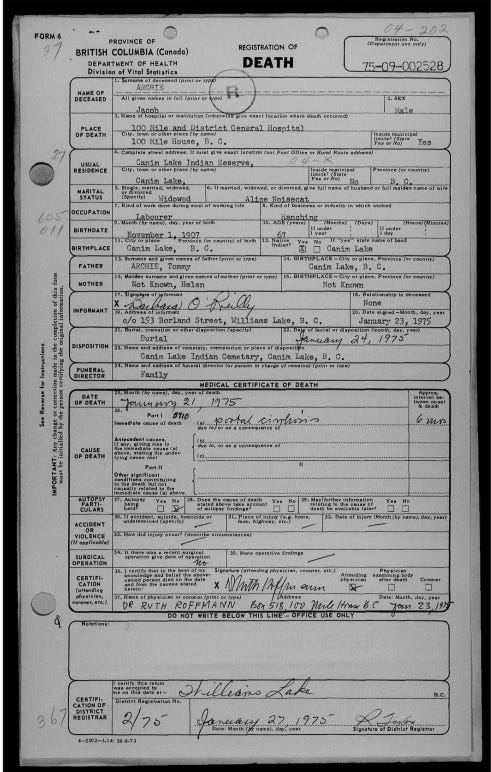 04-202
FORM 6
37
PROVINCE OF
BRITISH COLUMBIA (Canada)
DEPARTMENT OF HEALTH
Division of Vital Statistics
REGISTRATION OF
DEATH
Registration No.
(Department use only)
75-09-002528
NAME OF DECEASED
1. Surname of deceased (print or type)
ARCHIE
R
All given names in full (print or type)
Jacob
2. SEX
Male
PLACE OF DEATH
3. Name of hospital or institution (otherwise give exact location where death occurred)
100 Mile and District General Hospital
City, town or other place (by name)
100 Mile House, B. C.
Inside municipal limits? (State Yes or No)
Yes
27
USUAL RESIDENCE
4. Complete street address: If rural give exact location (not Post Office or Rural Route address)
Canim Lake Indian Reserve,
04-X
City, town or other place (by name)
Canim Lake,
Inside municipal limits? (State Yes or No)
No
Province (or country)
B. C.
MARITAL STATUS
5. Single, married, widowed, or divorced (Specify)
Widowed
6. If married, widowed, or divorced, give full name of husband or full maiden name of wife
Alice Noisecat
605
011
OCCUPATION
7. Kind of work done during most of working life
Labourer
8. Kind of business or industry in which worked
Ranching
BIRTHDATE
9. Month (by name), day, year of birth
November 1, 1907
10. AGE (Years)
67
(Months) (Days)
If under 1 year
(Hours) (Minutes)
If under 1 day
BIRTHPLACE
11. City or place Province (or country) of birth
Canim Lake, B. C.
12. Native Indian?
Yes No
X
If "yes" state name of band
Canim Lake
FATHER
13. Surname and given names of father (print or type)
ARCHIE, Tommy
14. BIRTHPLACE - City or place, Province (or country)
Canim Lake, B. C.
MOTHER
15. Maiden surname and given names of mother (print or type)
Not Known, Helen
16. BIRTHPLACE - City or place, Province (or country)
Not Known
INFORMANT
17. Signature of informant
X Barbara O'Reilly
18. Relationship to deceased
None
19. Address of informant
c/o 153 Borland Street, Williams Lake, B. C.
20. Date signed - Month, day, year
January 23, 1975
DISPOSITION
21. Burial, cremation or other disposition (specify)
Burial
22. Date of burial or disposition (month, day, year)
January 24, 1975
23. Name and address of cemetery, crematorium or place of disposition
Canim Lake Indian Cemetary, Canim Lake, B. C.
FUNERAL DIRECTOR
24. Name and address of funeral director (or person in charge of remains) (print or type)
Family
See Reverse for Instructions
IMPORTANT: Any change or correction made in the completion of this form must be initialled by the person certifying the original information.
MEDICAL CERTIFICATE OF DEATH
DATE OF DEATH
25. Month (by name), day, year of death
January 21, 1975
Approx. interval between onset & death
CAUSE OF DEATH
26.
Part I
5710
Immediate cause of death
(a) portal cirrhosis
6 mos
due to, or as a consequence of
Antecedent causes, if any, giving rise to the immediate cause (a) above, stating the underlying cause last
(b)
due to, or as a consequence of
(c)
Part II
II
Other significant conditions contributing to the death but not causally related to the immediate cause (a) above
AUTOPSY PARTICULARS
27. Autopsy being held?
Yes No
28. Does the cause of death stated above take account of autopsy findings?
Yes No
29. May further information relating to the cause of death be available later?
Yes No
ACCIDENT OR VIOLENCE
(if applicable)
30. If accident, suicide, homicide or undetermined (specify)
31. Place of injury (e.g. home, farm, highway, etc.)
32. Date of injury (Month (by name), day, year)
33. How did injury occur? (describe circumstances)
SURGICAL OPERATION
34. If there was a recent surgical operation give date of operation
no
35. State operative findings
CERTIFICATION
(attending physician, coroner, etc.)
36. I certify that to the best of my knowledge and belief the above-named person died on the date and from the causes stated herein:
Signature (attending physician, coroner, etc.)
X
Attending physician
Physician examining body after death
Coroner
37. Name of physician or coroner (print or type)
DR RUTH ROFFMANN
Address
Box 518, 100 Mile House B C
Date: Month, day, year
Jan 23, 1975
DO NOT WRITE BELOW THIS LINE - OFFICE USE ONLY
Notations:
367
CERTIFICATION OF DISTRICT REGISTRAR
I certify this return was accepted by me on this date at -
Williams Lake
B.C.
District Registration No.
2/75
January 27, 1975
Date: Month (by name), day, year
Signature of District Registrar